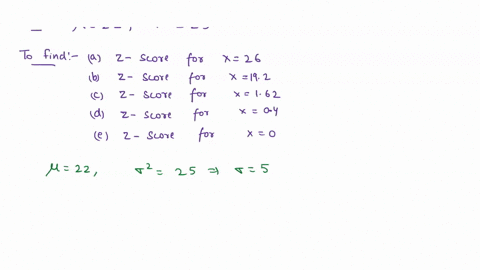 To find:- (a) Z-score for x = 26
(b) Z-score for x = 19.2
(c) Z-score for x = 1.62
(d) Z-score for x = 0.4
(e) Z-score for x = 0
μ = 22, σ² = 25 ⇒ σ = 5